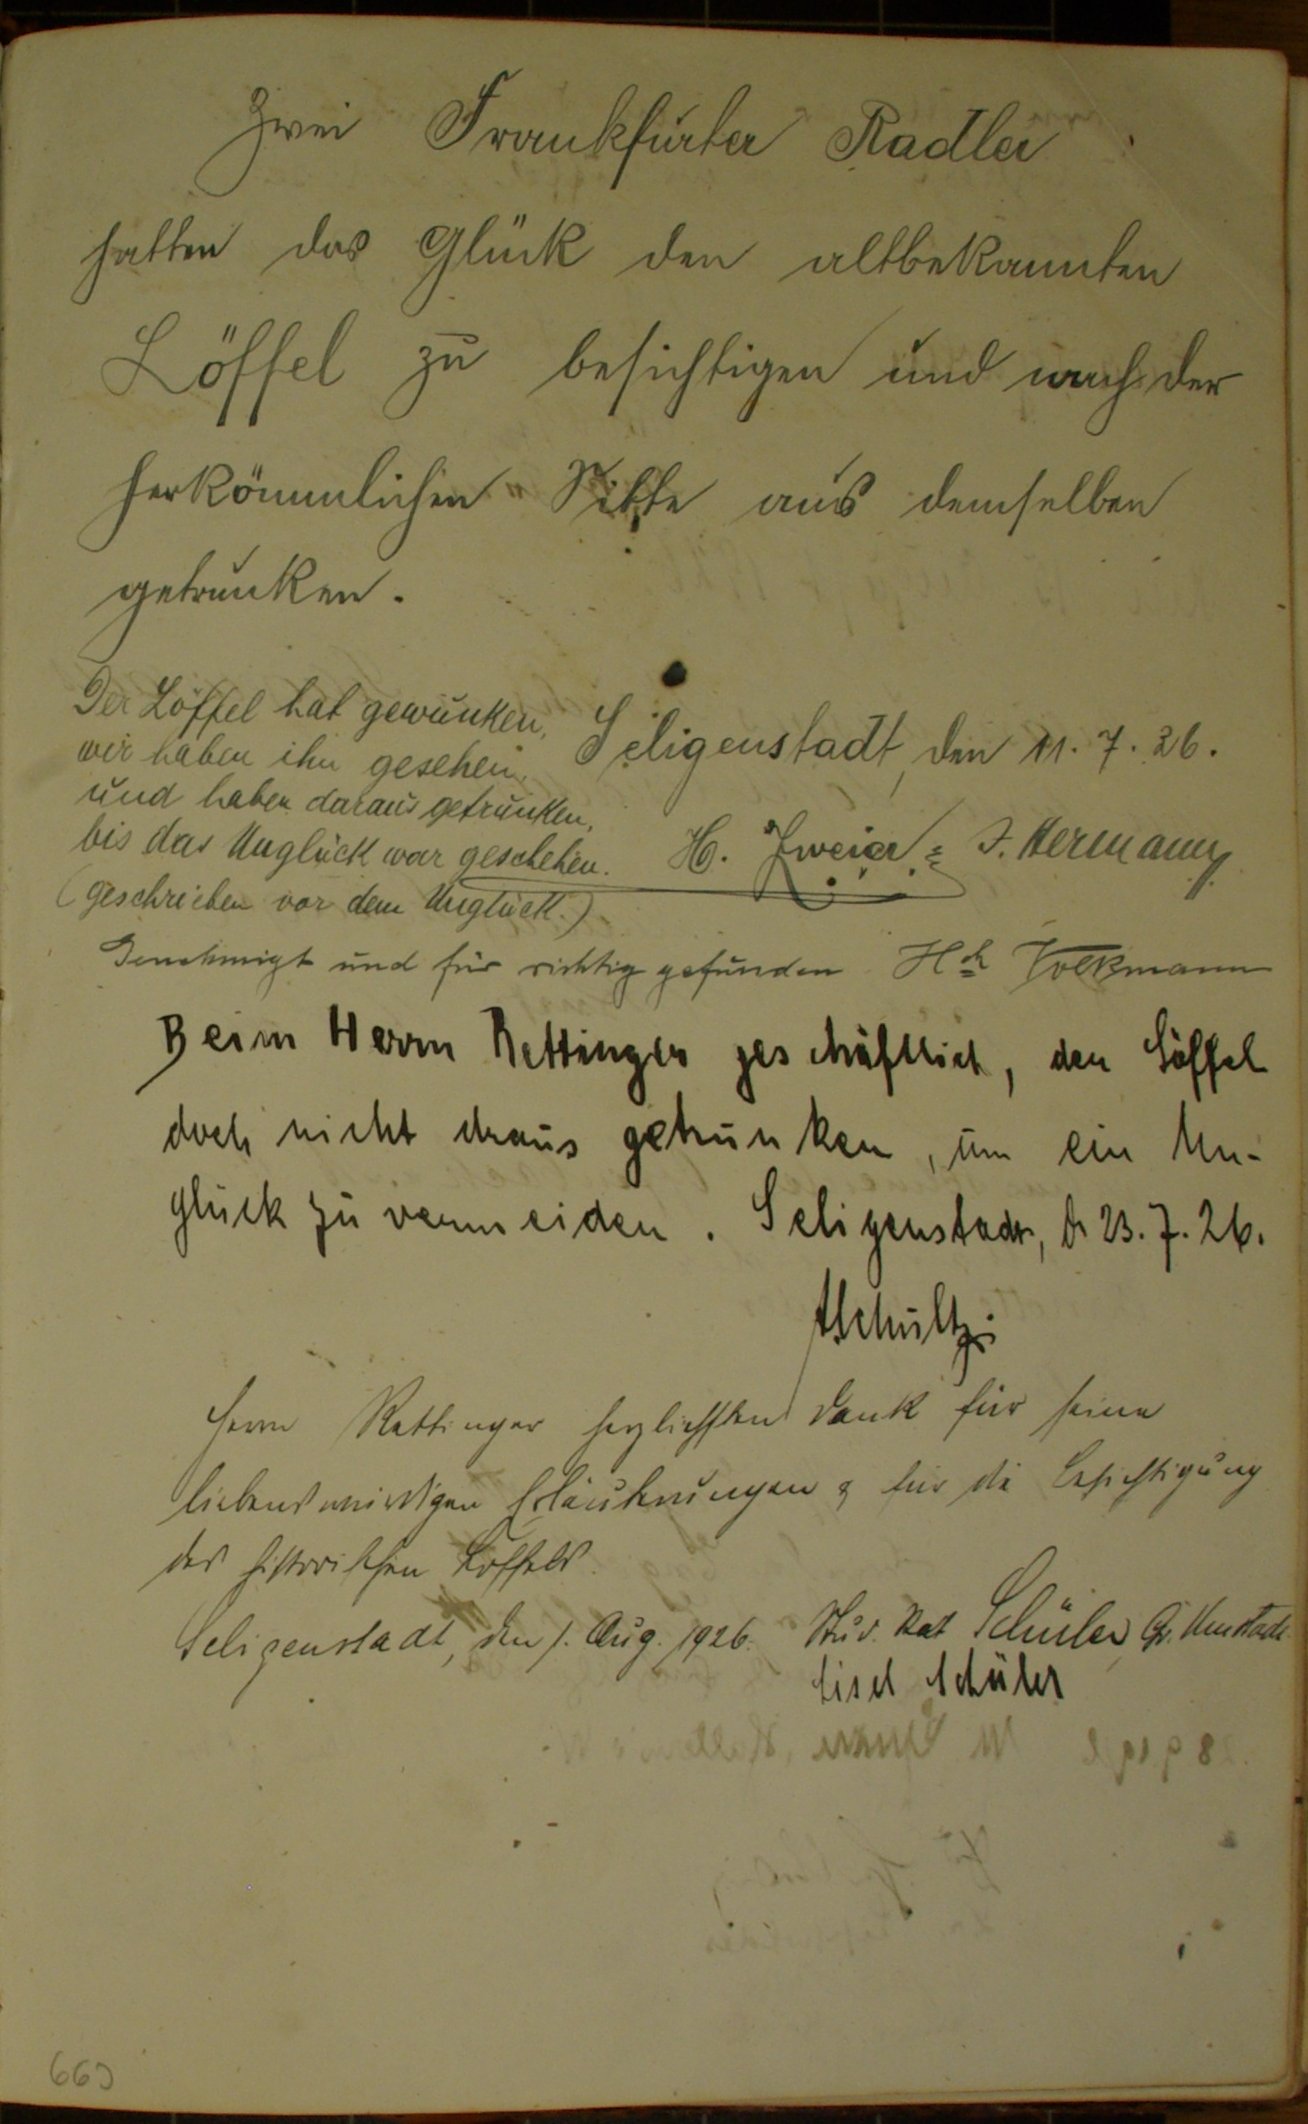 Zwei Frankfurter Radler
hatten das Glück den altbekannten
Löffel zu besichtigen und nach der
herkömmlichen Sitte aus demselben
getrunken.
Der Löffel hat gewunken,
wir haben ihn gesehen,
und haben daraus getrunken,
bis das Unglück war geschehen.
(geschrieben vor dem Unglück.)
Seligenstadt, den 11.7.26.
H. Zweier = J. Hermann
Genehmigt und für richtig gefunden Hch Volkmann
Beim Herrn Rettinger geschäftlich, den Löffel
doch nicht draus getrunken, um ein Un-
glück zu vermeiden. Seligenstadt, d. 23.7.26.
Schultz.
Herrn Rettinger herzlichsten Dank für seine
liebenswürdigen Erläuterungen & für die Besichtigung
des historischen Löffels.
Seligenstadt, den 1. Aug. 1926. Stud. Rat Schüler, Gr. Umstadt.
Lisel Schüler